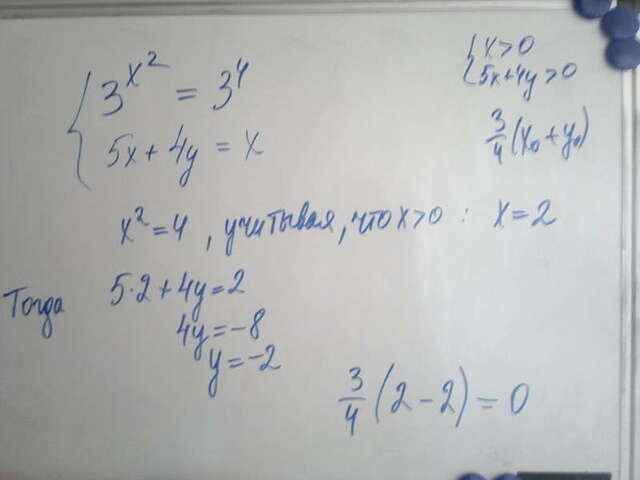 3^{x^2} = 3^4
5x + 4y = x
x > 0
5x + 4y > 0
3/4 (x₀ + y₀)
x² = 4 , учитывая, что x > 0 : x = 2
Тогда 5·2 + 4y = 2
4y = -8
y = -2
3/4 (2 - 2) = 0